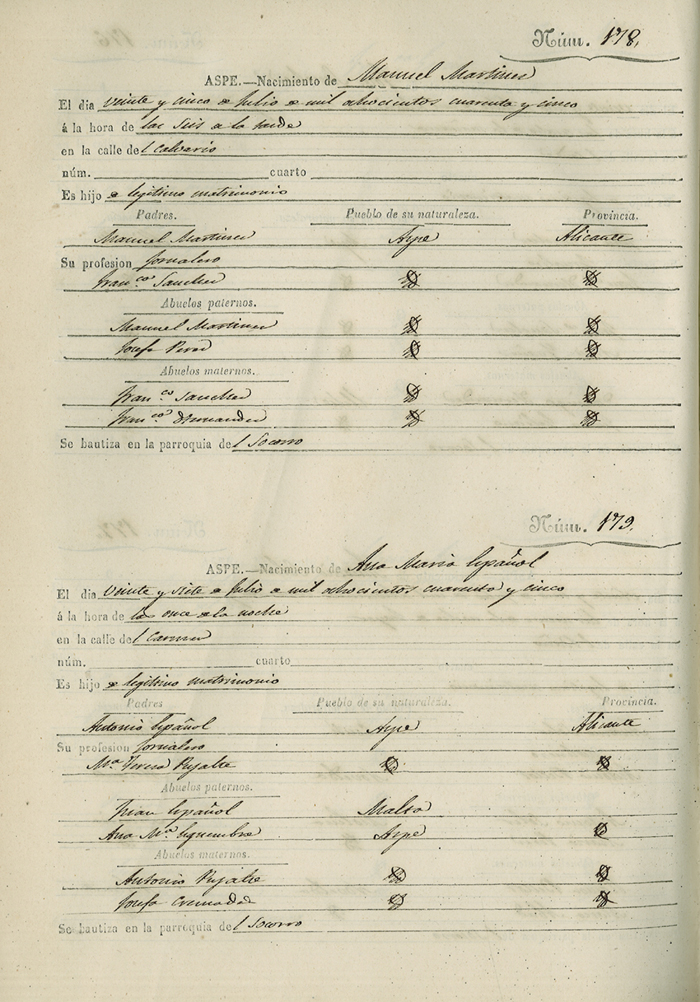 Núm. 178.
ASPE.—Nacimiento de Manuel Martinez
El dia veinte y cinco de Julio de mil ochocientos cuarenta y cinco
á la hora de las seis de la tarde
en la calle del Calvario
núm. cuarto
Es hijo de legitimo matrimonio
Padres. Pueblo de su naturaleza. Provincia.
Manuel Martinez Aspe Alicante
Su profesion Jornalero
Fran.ca Sanchez
Abuelos paternos.
Manuel Martinez
Josefa
Abuelos maternos.
Fran.co Sanchez
Fran.ca Hernandez
Se bautiza en la parroquia del Socorro
Núm. 179.
ASPE.—Nacimiento de Ana Maria Español
El dia veinte y siete de Julio de mil ochocientos cuarenta y cinco
á la hora de las once de la noche
en la calle del Carmen
núm. cuarto
Es hijo de legitimo matrimonio
Padres Pueblo de su naturaleza. Provincia.
Antonio Español Aspe Alicante
Su profesion Jornalero
M.a Teresa Pujalte
Abuelos paternos.
Juan Español
Ana M.a Aspe
Abuelos maternos.
Antonio Pujalte
Josefa Cremades
Se bautiza en la parroquia del Socorro